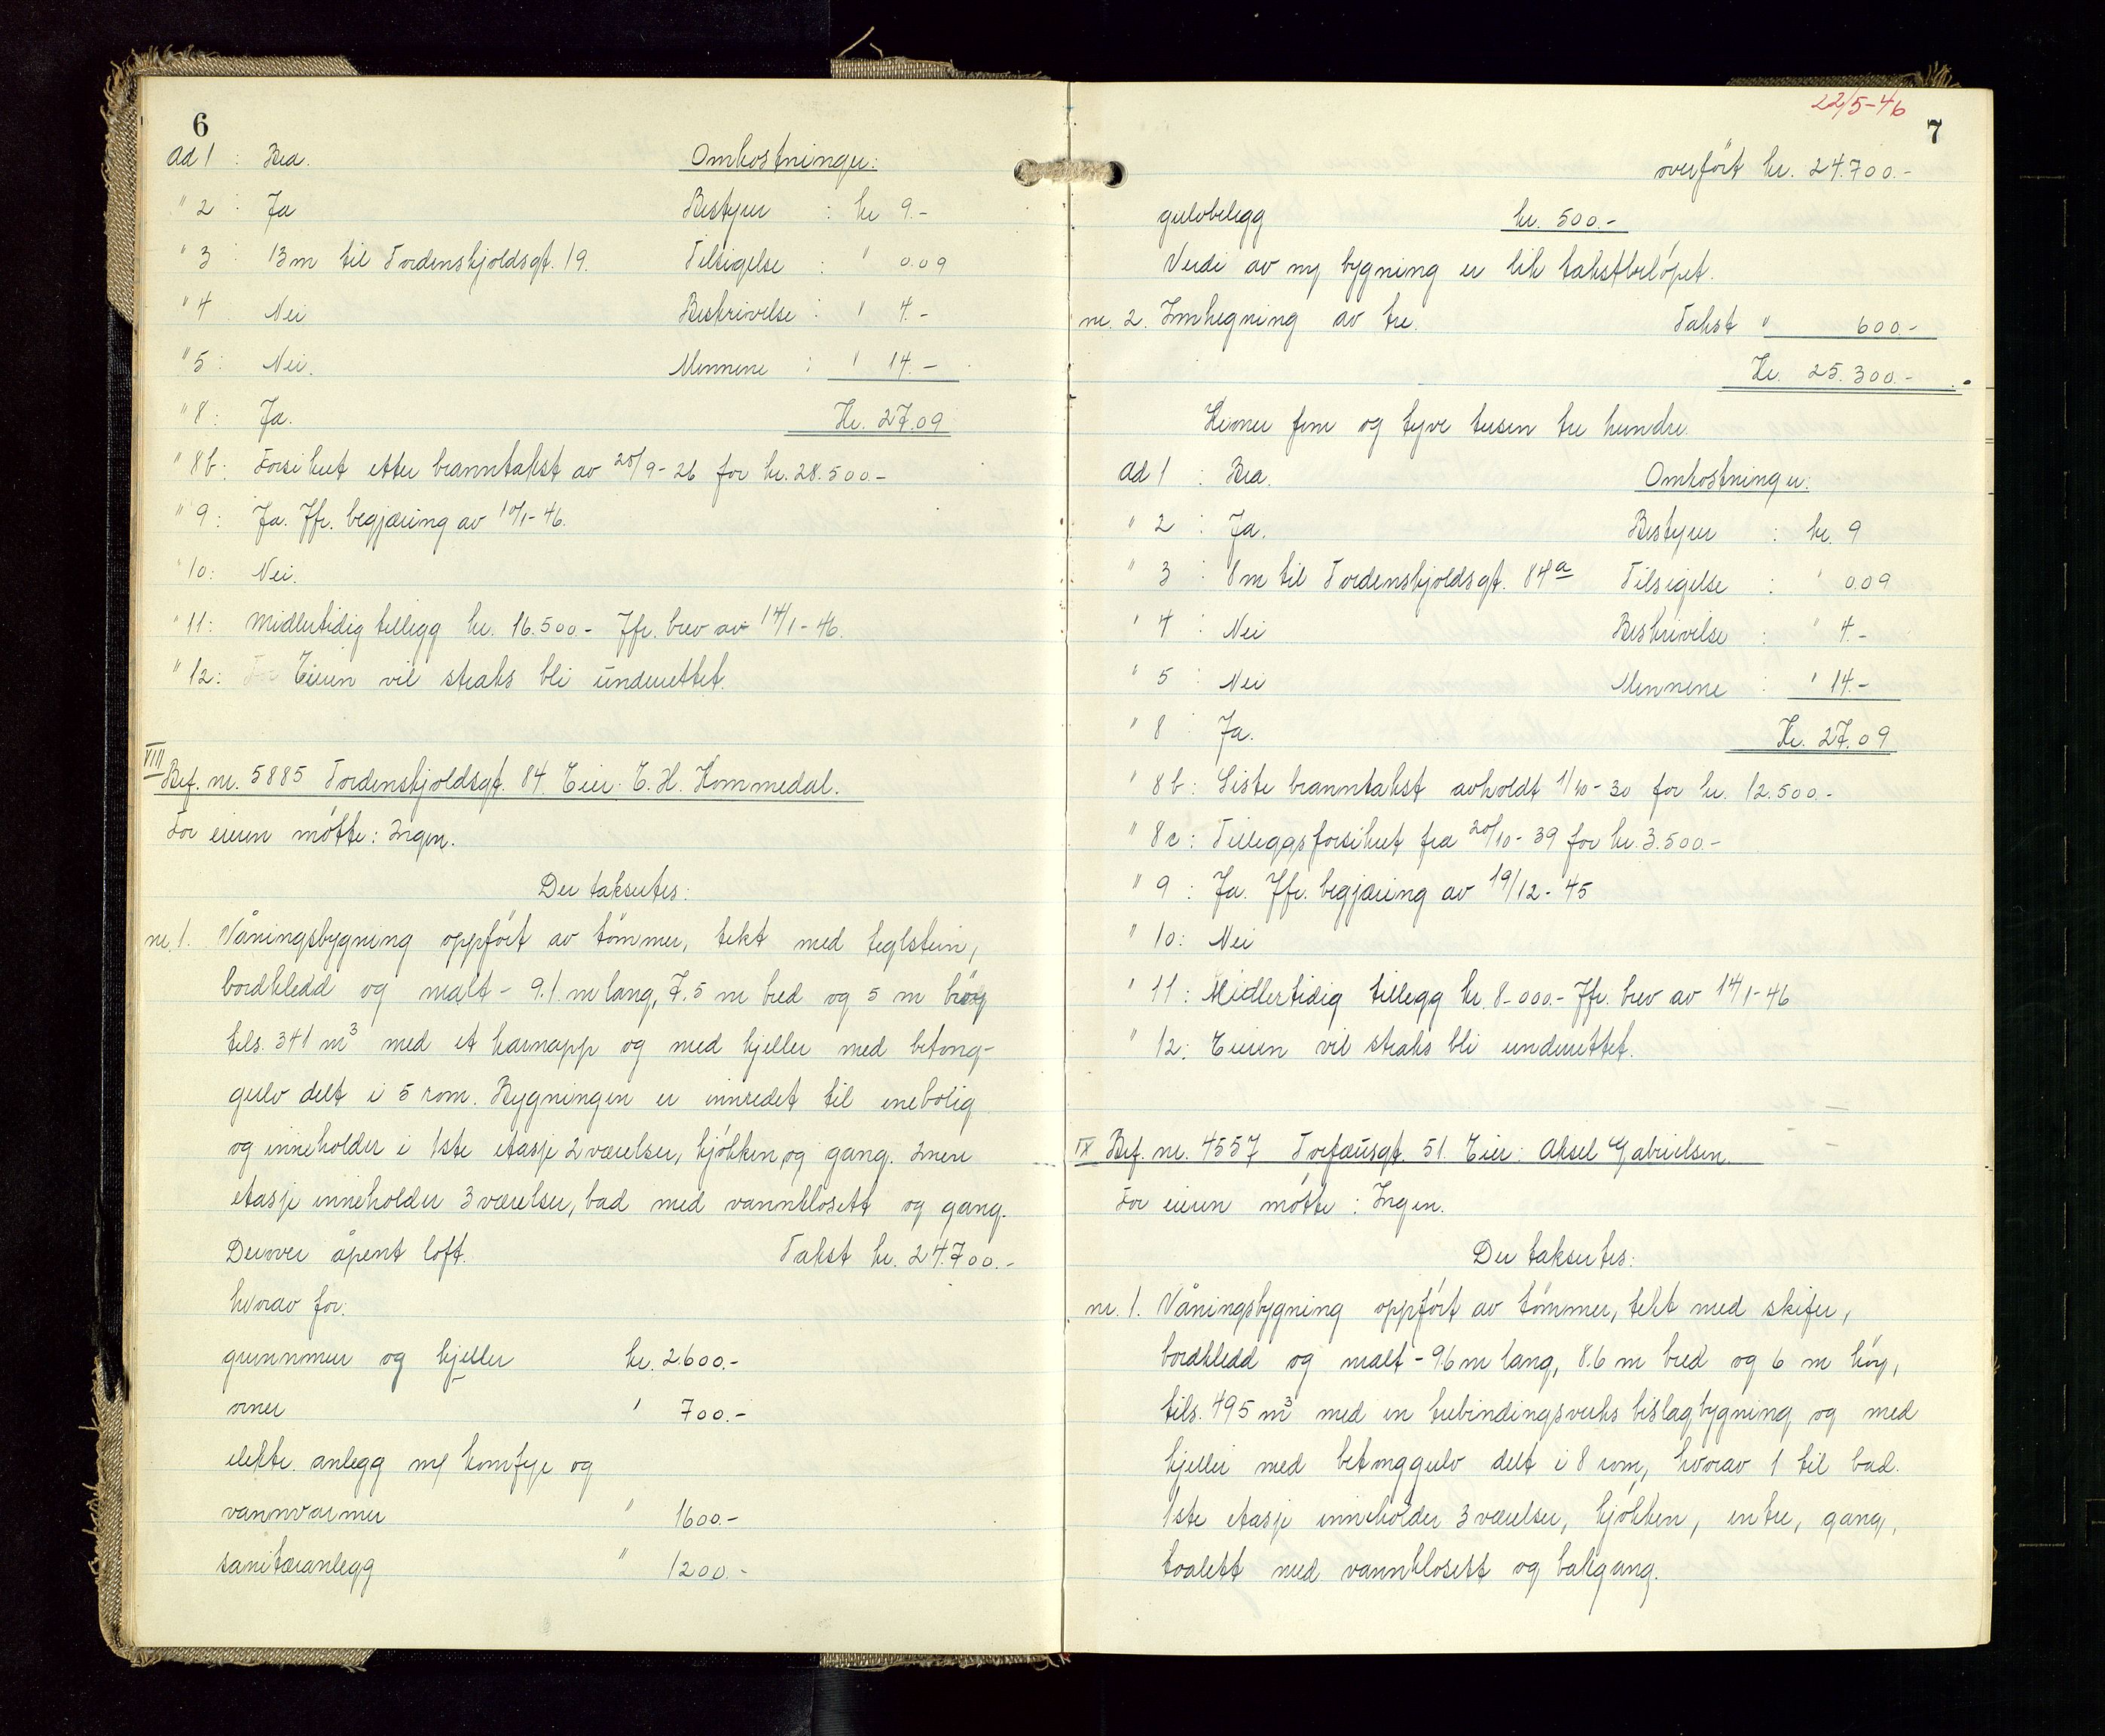 6
Ad 1 : Bra. Omkostninger:
" 2 : Ja Bestyrer : kr 9.-
" 3 : 13m til Tordenskjoldsgt. 19. Tilsigelse : " 0.09
" 4 Nei Beskrivelse : " 4.-
" 5 : Nei. Mennene : " 14.-
" 8 : Ja. Kr. 27.09
" 8b: Forsikret etter branntakst av 25/9-26 for kr. 28.500.-
" 9 : Ja. Jfr. begjæring av 10/1-46.
" 10: Nei.
" 11: Midlertidig tillegg kr. 16.500.- Jfr. brev av 14/1-46.
" 12: Eieren vil straks bli underrettet.
VIII Bef. nr. 5885 Tordenskjoldsgt. 84. Eier: E. H. Hommedal.
For eieren møtte: Ingen.
Der takseres:
nr. 1. Våningsbygning oppført av tømmer, tekt med teglstein,
bordkledd og malt - 9.1 m lang, 7.5 m bred og 5 m høy
tils. 341 m³ med et karnapp og med kjeller med betong-
gulv delt i 5 rom. Bygningen er innredet til enebolig
og inneholder i 1ste etasje 2 værelser, kjøkken og gang. 2nen
etasje inneholder 3 værelser, bad med vannklosett og gang.
Derover åpent loft. Takst kr. 24.700.-
hvorav for:
grunnmur og kjeller kr. 2600.-
ovner " 700.-
elektr. anlegg m/ komfyr og
vannvarmer " 1600.-
sanitæranlegg " 1200.-
22/5-46
7
overført kr. 24.700.-
gulvbelegg kr. 500.-
Verdi av ny bygning er lik takstbeløpet.
nr. 2. Innhegning av tre. Takst " 600.-
Kr. 25.300.-
Kroner fem og tyve tusen tre hundre.
Ad 1 : Bra. Omkostninger:
" 2 : Ja. Bestyrer : kr. 9
" 3 : 8m til Tordenskjoldsgt. 84a Tilsigelse : " 0.09
" 4 : Nei Beskrivelse : " 4.-
" 5 : Nei Mennene : " 14.-
" 8 Ja. Kr. 27.09
" 8b: Siste branntakst avholdt 1/10-30 for kr. 12.500.-
" 8c: Tilleggsforsikret fra 20/10-39 for kr. 3.500.-
" 9 : Ja. Jfr. begjæring av 19/12-45
" 10: Nei
" 11: Midlertidig tillegg kr. 8.000.- Jfr. brev av 14/1-46
" 12: Eieren vil straks bli underrettet.
IX Bef. nr. 4557 Torfæusgt. 51. Eier: Aksel Gabrielsen.
For eieren møtte: Ingen.
Der takseres:
nr. 1. Våningsbygning oppført av tømmer, tekt med skifer,
bordkledd og malt - 9.6 m lang, 8.6 m bred og 6 m høy,
tils. 495 m³ med en trebindingsverks bislagbygning og med
kjeller med betonggulv delt i 8 rom, hvorav 1 til bad.
1ste etasje inneholder 3 værelser, kjøkken, entre, gang,
toalett med vannklosett og bakgang.